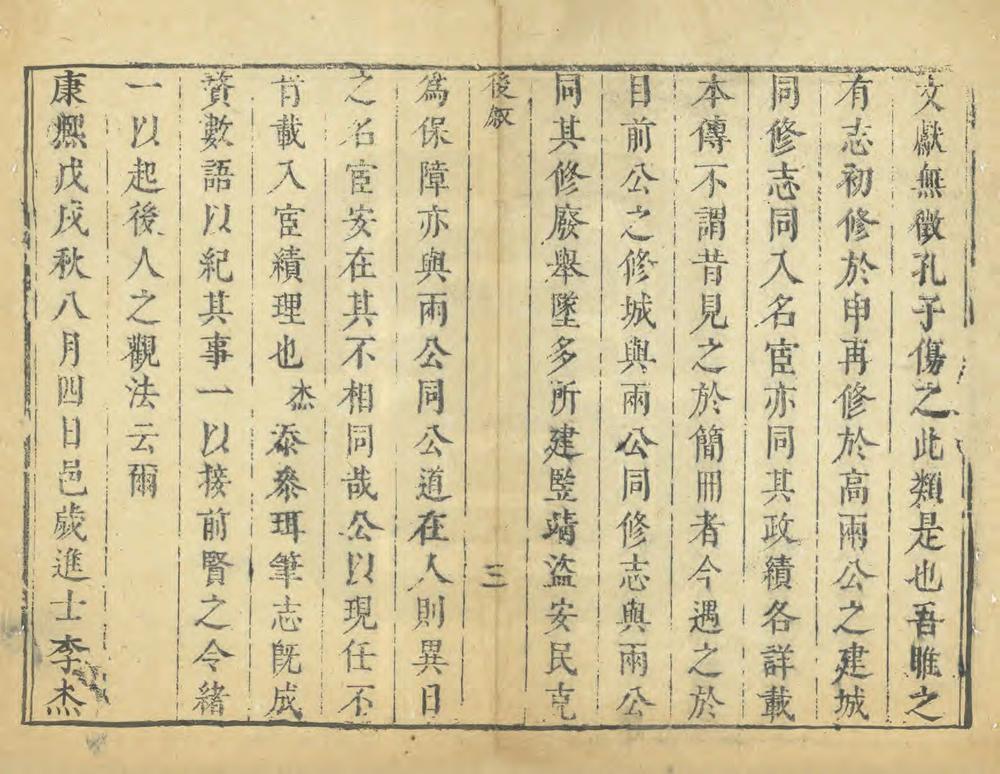 文獻無徵孔子傷之此類是也吾睢之
有志初修於申再修於高兩公之建城
同修志同入名宦亦同其政績各詳載
本傳不謂昔見之於簡冊者今遇之於
目前公之修城與兩公同修志與兩公
同其修廢舉墜多所建豎靖盜安民克
後敘
三
為保障亦與兩公同公道在人則異日
之名宦安在其不相同哉公以現任不
肯載入宦績理也杰忝叅珥筆志既成
賛數語以紀其事一以接前賢之令緒
一以起後人之觀法云爾
康熙戊戌秋八月四日邑歲進士李杰